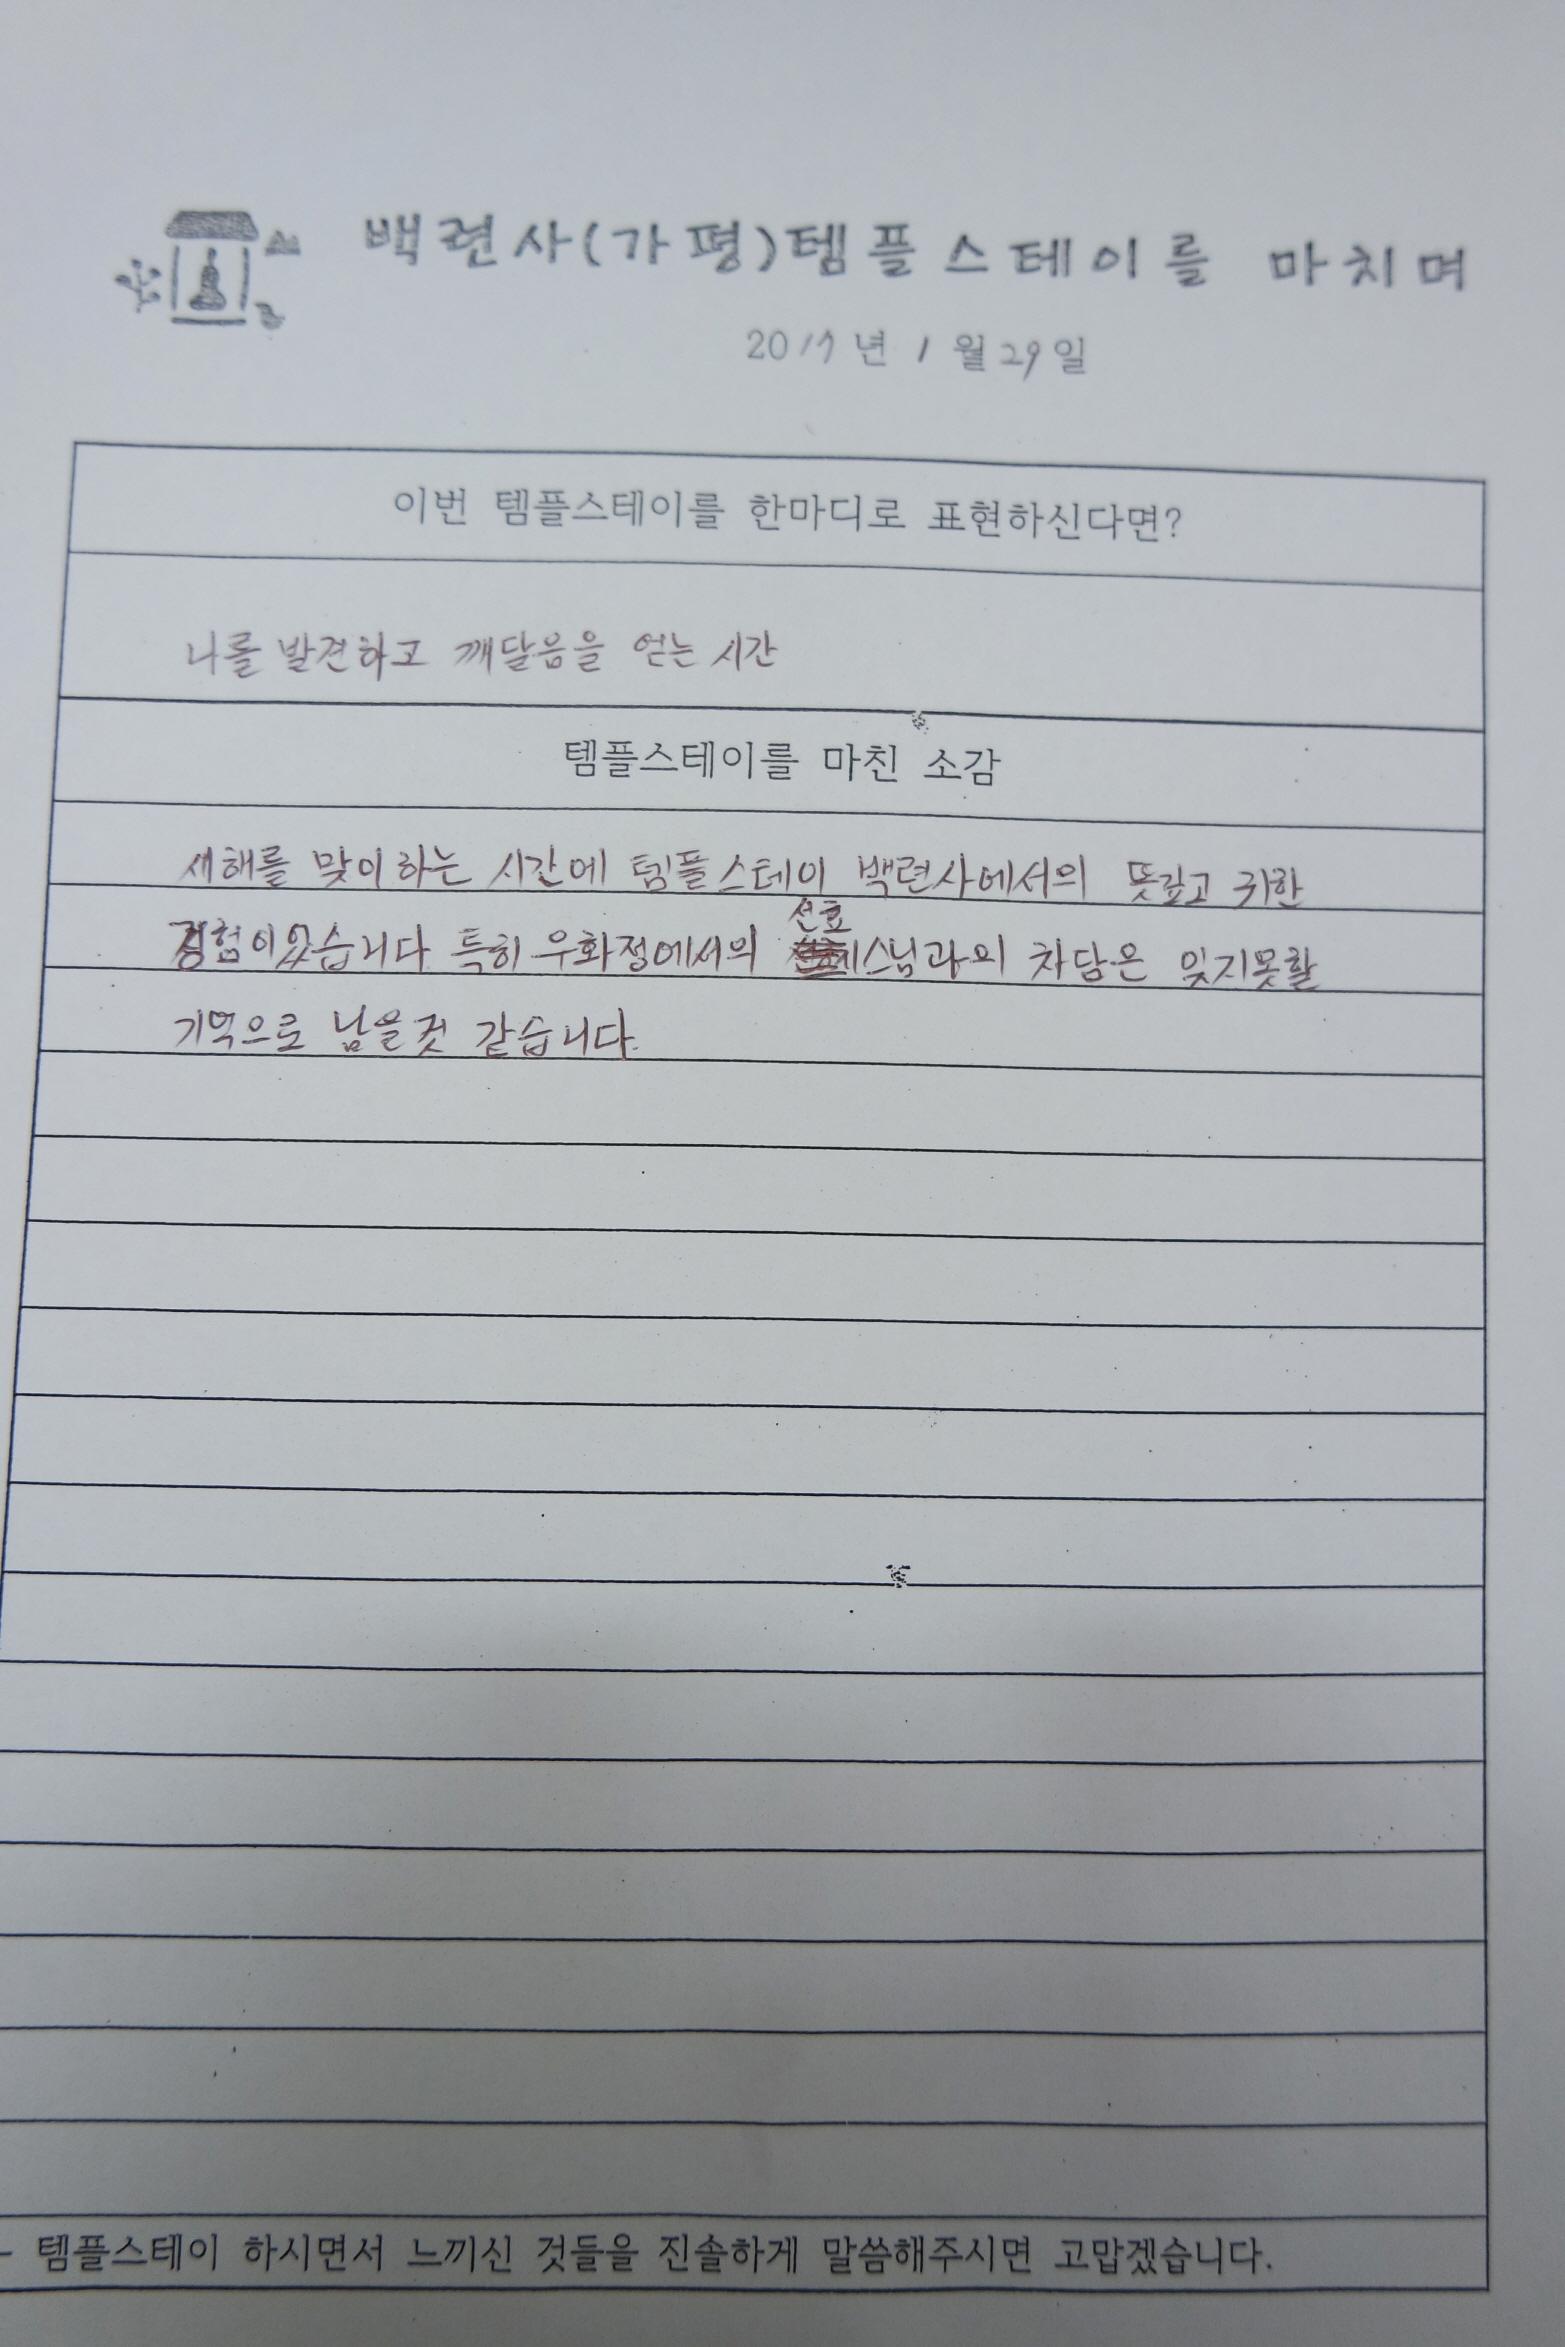 백련사(가평)템플스테이를 마치며
2017년 1월 29일
이번 템플스테이를 한마디로 표현하신다면?
나를 발견하고 깨달음을 얻는 시간
템플스테이를 마친 소감
새해를 맞이하는 시간에 템플스테이 백련사에서의 뜻깊고 귀한
선효
경험이었습니다 특히 우화정에서의 스님과의 차담은 잊지못할
기억으로 남을것 같습니다.
- 템플스테이 하시면서 느끼신 것들을 진솔하게 말씀해주시면 고맙겠습니다.